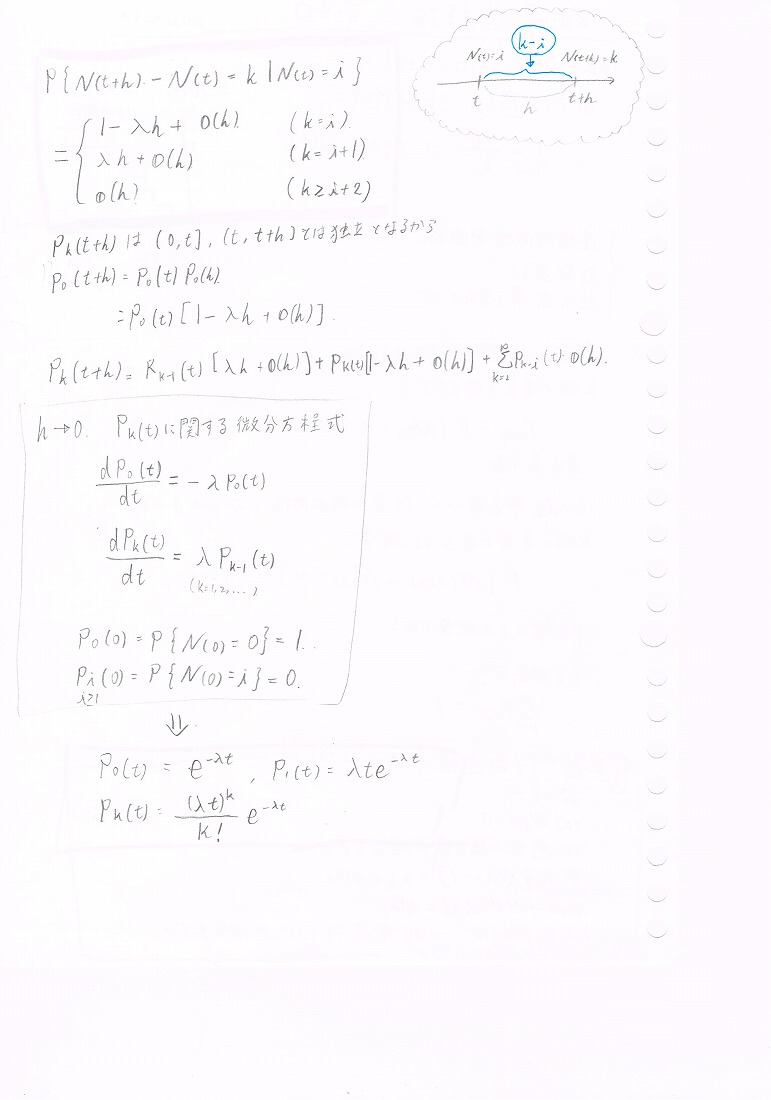 k-i
N(t)=i N(t+h)=k
t h t+h
P{N(t+h) - N(t) = k | N(t) = i}
= { 1-λh + o(h) (k=i)
λh + o(h) (k=i+1)
o(h) (k≥i+2)
Pk(t+h) は (0,t], (t,t+h] では独立となるから
P0(t+h) = P0(t) P0(h)
= P0(t) [1-λh + o(h)]
Pk(t+h) = Pk-1(t) [λh + o(h)] + Pk(t)[1-λh + o(h)] + ∑_{k=2}^{∞} Pk-i(t) o(h).
h→0. Pk(t)に関する微分方程式
dP0(t)/dt = -λP0(t)
dPk(t)/dt = λPk-1(t)
(k=1,2,...)
P0(0) = P{N(0)=0} = 1.
Pi(0) = P{N(0)=i} = 0.
i≥1
⇓
P0(t) = e^{-λt}, P1(t) = λte^{-λt}
Pk(t) = (λt)^k/k! e^{-λt}